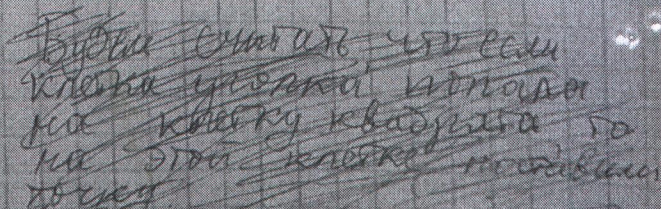 Будем считать, что если
клетка уголка попала
на клетку квадрата то
на этой клетке поставили
точку